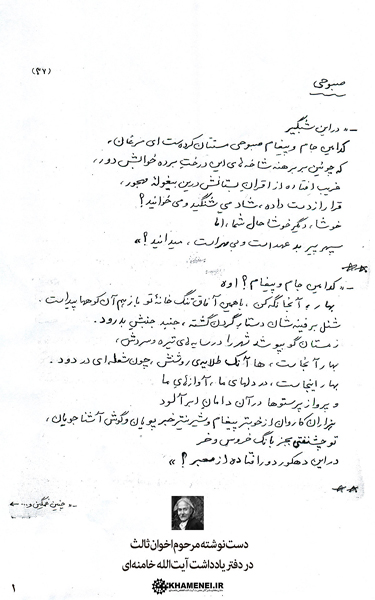 (۳۷)
صبوحی
ـ «در این شبگیر
کدامین جام و پیغام صبوحی مستتان کرده‌ست ای مرغان،
که چونین بر برهنه شاخه‌های این درخت برده خوابش دور،
غریب افتاده از اقران بستانش درین بیغوله مهجور،
قرار از دست داده، شاد می‌شنگید و می‌خوانید؟
خوشا، دیگر خوشا حال شما، اما
سپهر پیر بد عهد است و بی مهر است، می‌دانید؟»
ـ «کدامین جام و پیغام؟ اوه
بهار، آنجا نگه کن. با همین آفاق تنگ خانهٔ تو باز هم آن کوهها پیداست.
شنل برفینه‌شان دستار گردن گشته، جنبد جنبش بدرود.
زمستان گو بپوشد شهر را در سایه‌های تیره و سردش،
بهار آنجاست، ها آنک طلایه‌ی روشنش، چون شعله‌ای در دود.
بهار اینجاست، در دلهای ما، آوازهای ما
و پرواز پرستوها در آن دامان ابر آلود
هزاران کاروان از خوبتر پیغام و شیرین‌تر خبر پویان و گوش آشنا جویان،
تو چشنفتی بجز بانگ خروس و خر
در این دهکور دور افتاده از معبر؟»
ـ «چنین غمگین و... ←
دست‌نوشته مرحوم اخوان ثالث
در دفتر یادداشت آیت‌الله خامنه‌ای
KHAMENEI.IR
۱